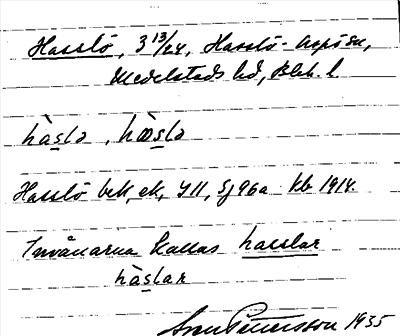 Hasslö, 3 13/24, Hasslö-Aspö sn,
Medelstads hd, Blek. l.
hàslə, hòslə
Hasslö bek, ek, JII, Sj 96a Kb 1914.
Invånarna kallas hasslar
hàslar
Sven Pettersson 1935